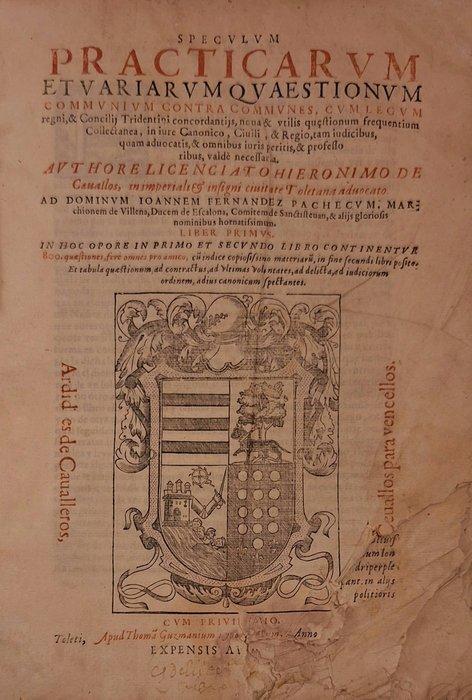 SPECVLVM
PRACTICARVM
ET VARIARVM QVAESTIONVM
COMMVNIVM CONTRA COMMVNES, CVM LEGVM
regni, & Concilij Tridentini concordantijs, noua & vtilis quęstionum frequentium
Collectanea, in iure Canonico, Ciuili, & Regio, tam iudicibus,
quam aduocatis, & omnibus iuris peritis, & professo
ribus, valde necessaria.
AVTHORE LICENCIATO HIERONIMO DE
Cauallos, in imperiali & insigni ciuitate Toletana aduocato.
AD DOMINVM IOANNEM FERNANDEZ PACHECVM, MAR-
chionem de Villena, Ducem de Escalona, Comitem de Sanctisteuan, & alijs gloriosis
nominibus hornatissimum.
LIBER PRIMVS.
IN HOC OPORE IN PRIMO ET SECVNDO LIBRO CONTINENTVR
800. quæstiones, ferè omnes pro amico, cū indice copiosissimo materiarū, in fine secundi libri posito.
Et tabula quæstionum, ad contractus, ad Vltimas Voluntates, ad delicta, ad iudiciorum
ordinem, ad ius canonicum spectantes.
Ardides de Caualleros,
Ceuallos para vencellos.
um Ion
driperple
cant. in alys
politioris
CVM PRIVI
Toleti, Apud Thomã Guzmanium Anno
EXPENSIS